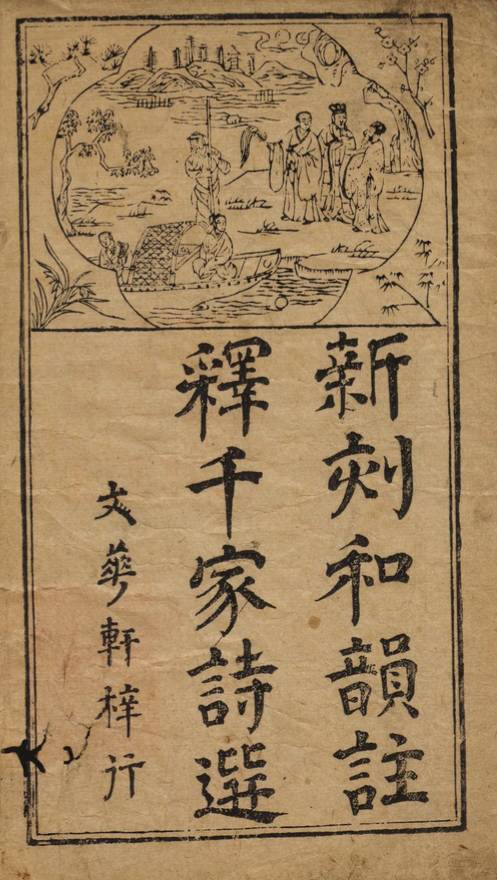 新刻和韻註
釋千家詩選
文華軒梓行